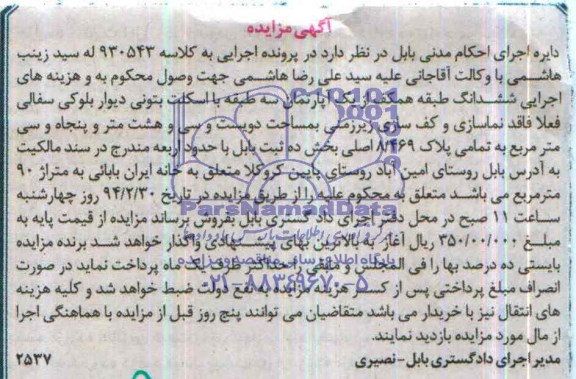 آگهی مزایده
دایره اجرای احکام مدنی بابل در نظر دارد در پرونده اجرایی به کلاسه ۹۳۰۵۴۳ له سید زینب
هاشمی با وکالت آقاجانی علیه سید علی رضا هاشمی جهت وصول محکوم به و هزینه های
اجرایی ششدانگ طبقه همکف از یک آپارتمان سه طبقه با اسکلت بتونی دیوار بلوکی سفالی
فعلا فاقد نماسازی و کف سازی زیرزملی بمساحت دویست و سی و هشت متر و پنجاه و سی
متر مربع به تمامی پلاک ۸/۴۶۹ اصلی بخش ده ثبت بابل با حدود اربعه مندرج در سند مالکیت
به آدرس بابل روستای امین آباد روستای پایین کروکلا متعلق به خانه ایران بابائی به متراژ ۹۰
مترمربع می باشد متعلق به محکوم علیه را از طریق مزایده در تاریخ ۹۴/۲/۳۰ روز چهارشنبه
ساعت ۱۱ صبح در محل دفتر اجرای دادگستری بابل بفروش برساند مزایده از قیمت پایه به
مبلغ ۳۵۰/۰۰/۰۰۰ ریال آغاز به بالاترین بهای پیشنهادی واگذار خواهد شد برنده مزایده
بایستی ده درصد بها را فی المجلس و مابقی را حداکثر ظرف یک ماه پرداخت نماید در صورت
انصراف مبلغ پرداختی پس از کسر هزینه مزایده به نفع دولت ضبط خواهد شد و کلیه هزینه
های انتقال نیز با خریدار می باشد متقاضیان می توانند پنج روز قبل از مزایده با هماهنگی اجرا
از مال مورد مزایده بازدید نمایند.
مدیر اجرای دادگستری بابل-نصیری
۲۵۳۷
ParsNamadData
پایگاه اطلاع رسانی مناقصه و مزایده
۰۲۱-۸۸۳۴۹۶۷۰-۵